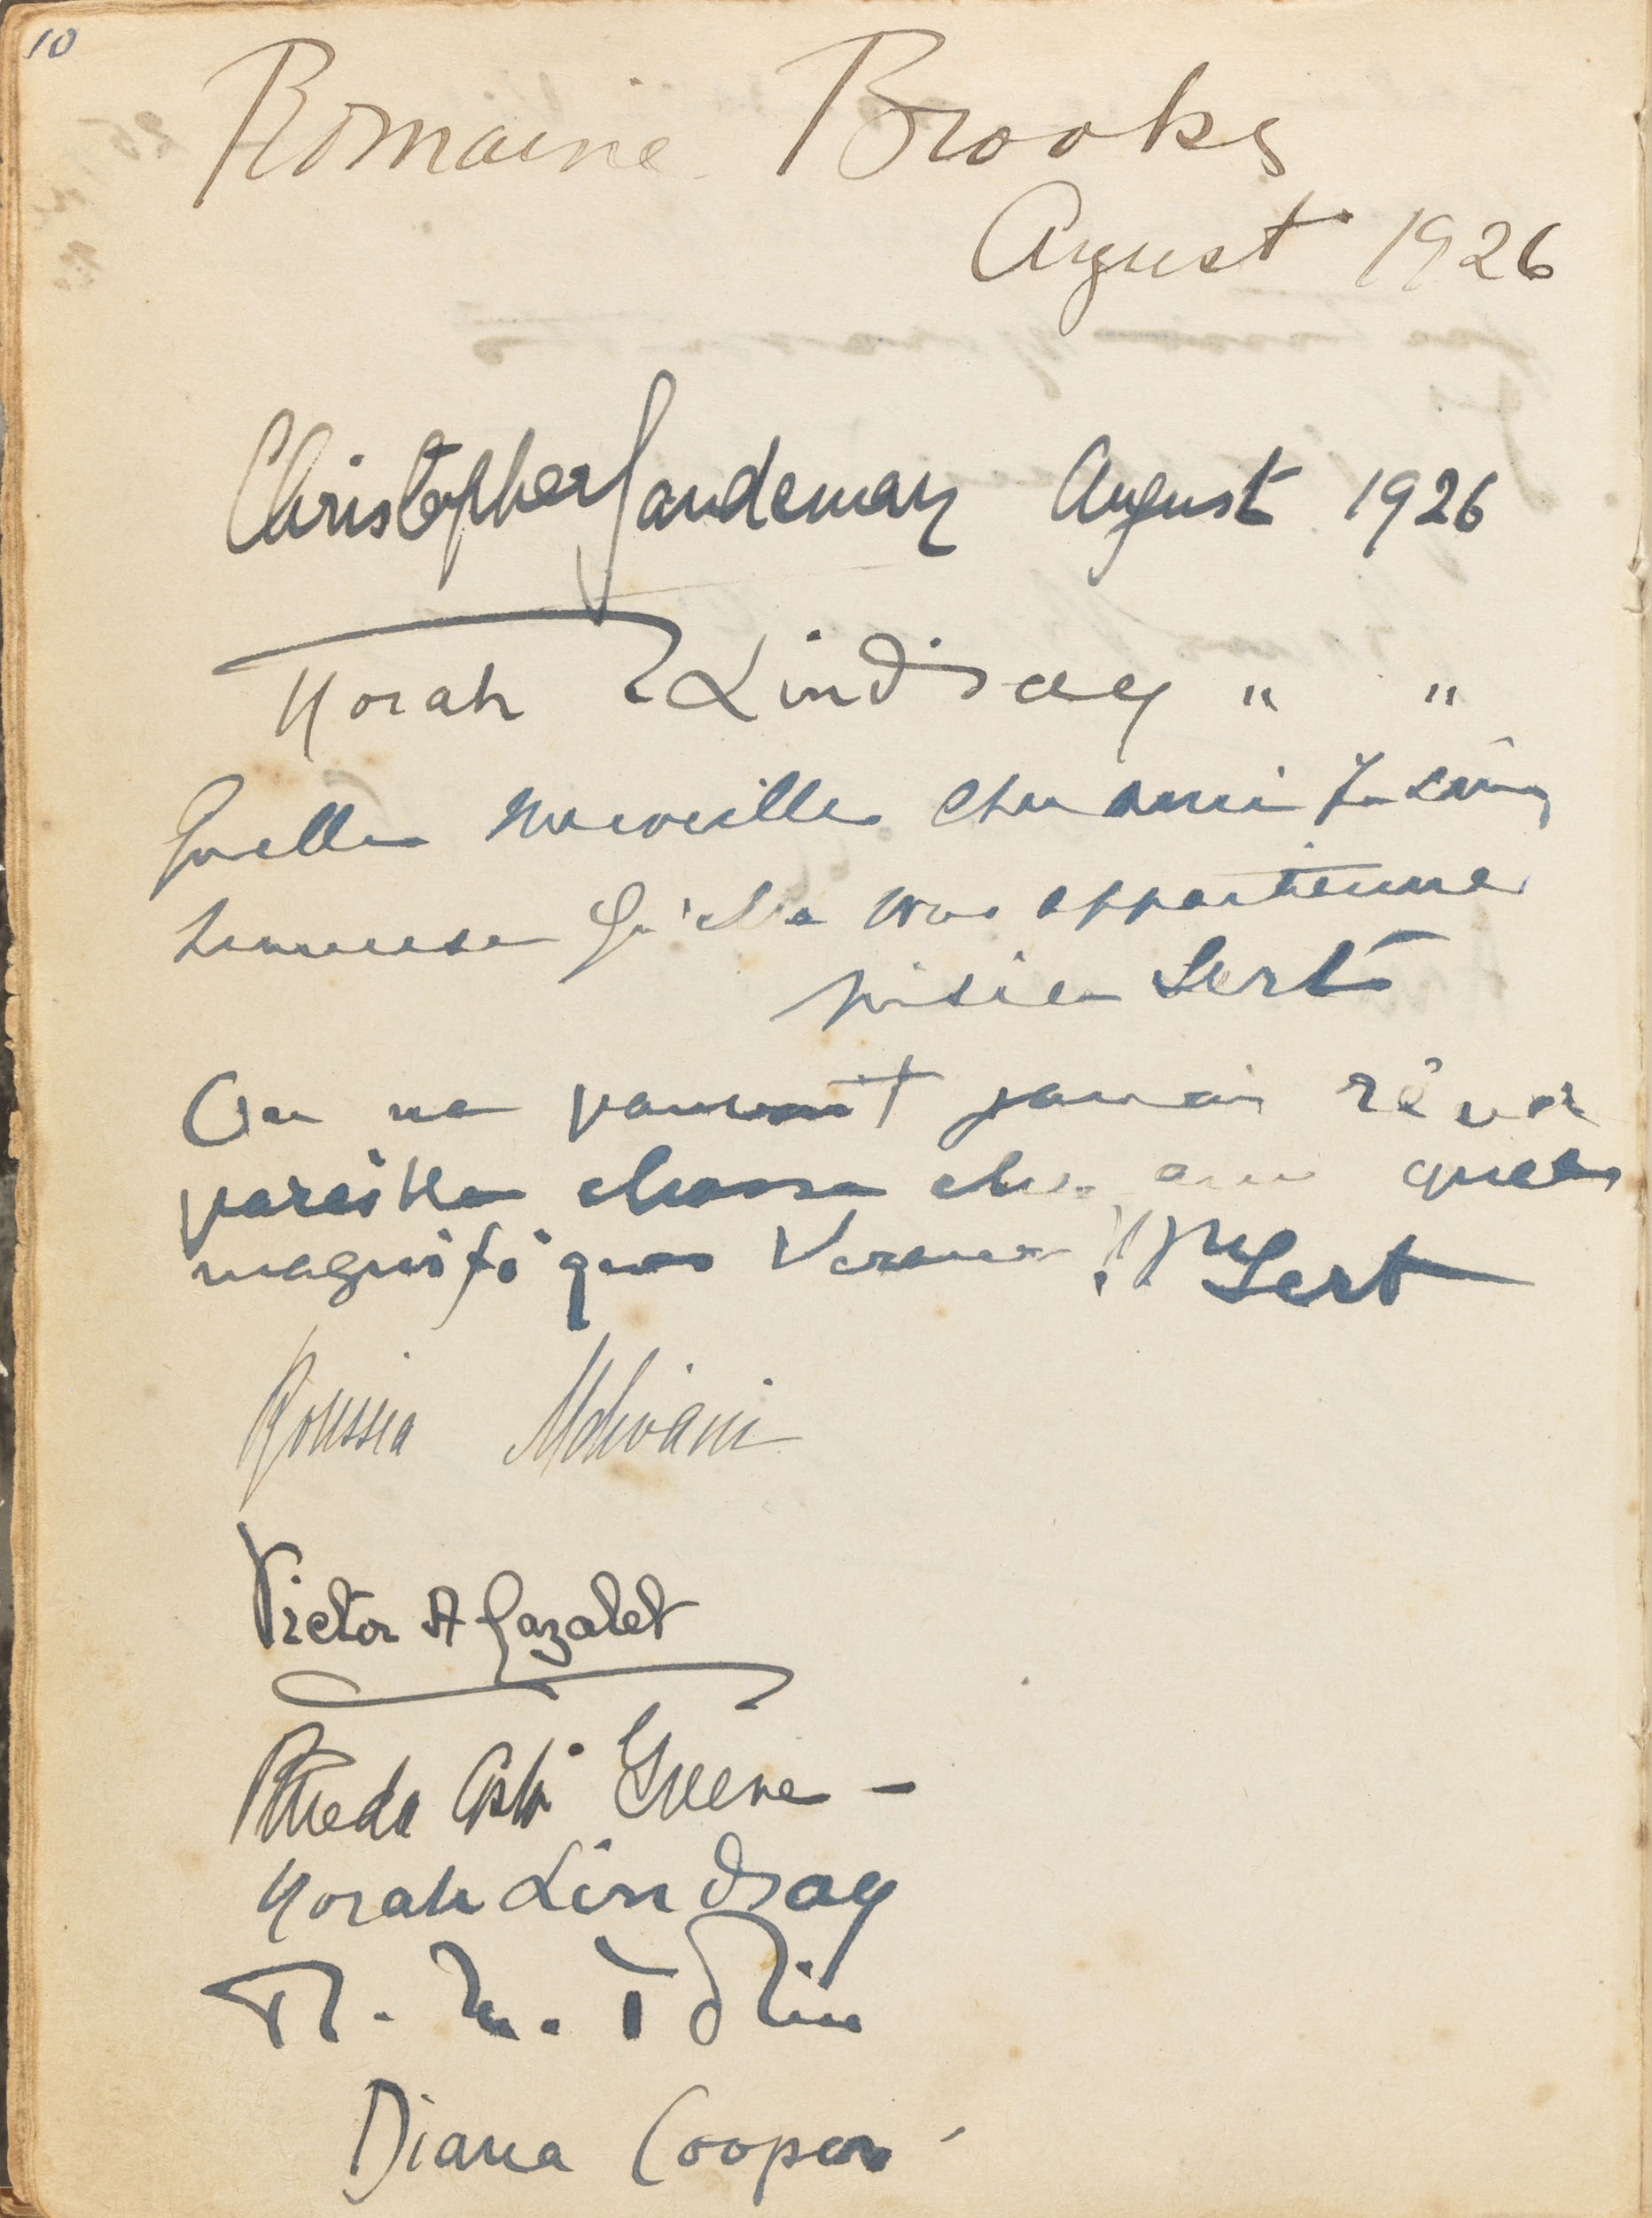 10
Romaine Brooks
August 1926
Christopher Sandeman August 1926
Norah Lindsay " "
Quelle merveille cher ami Je suis
heureuse qu'elle vous appartienne
Misia Sert
On ne pouvait jamais rêver
pareille chose cher ami quel
magnifique !! JM Sert
Roussia Mdivani
Victor A Cazalet
Costi Greene -
Norah Lindsay
Diana Cooper